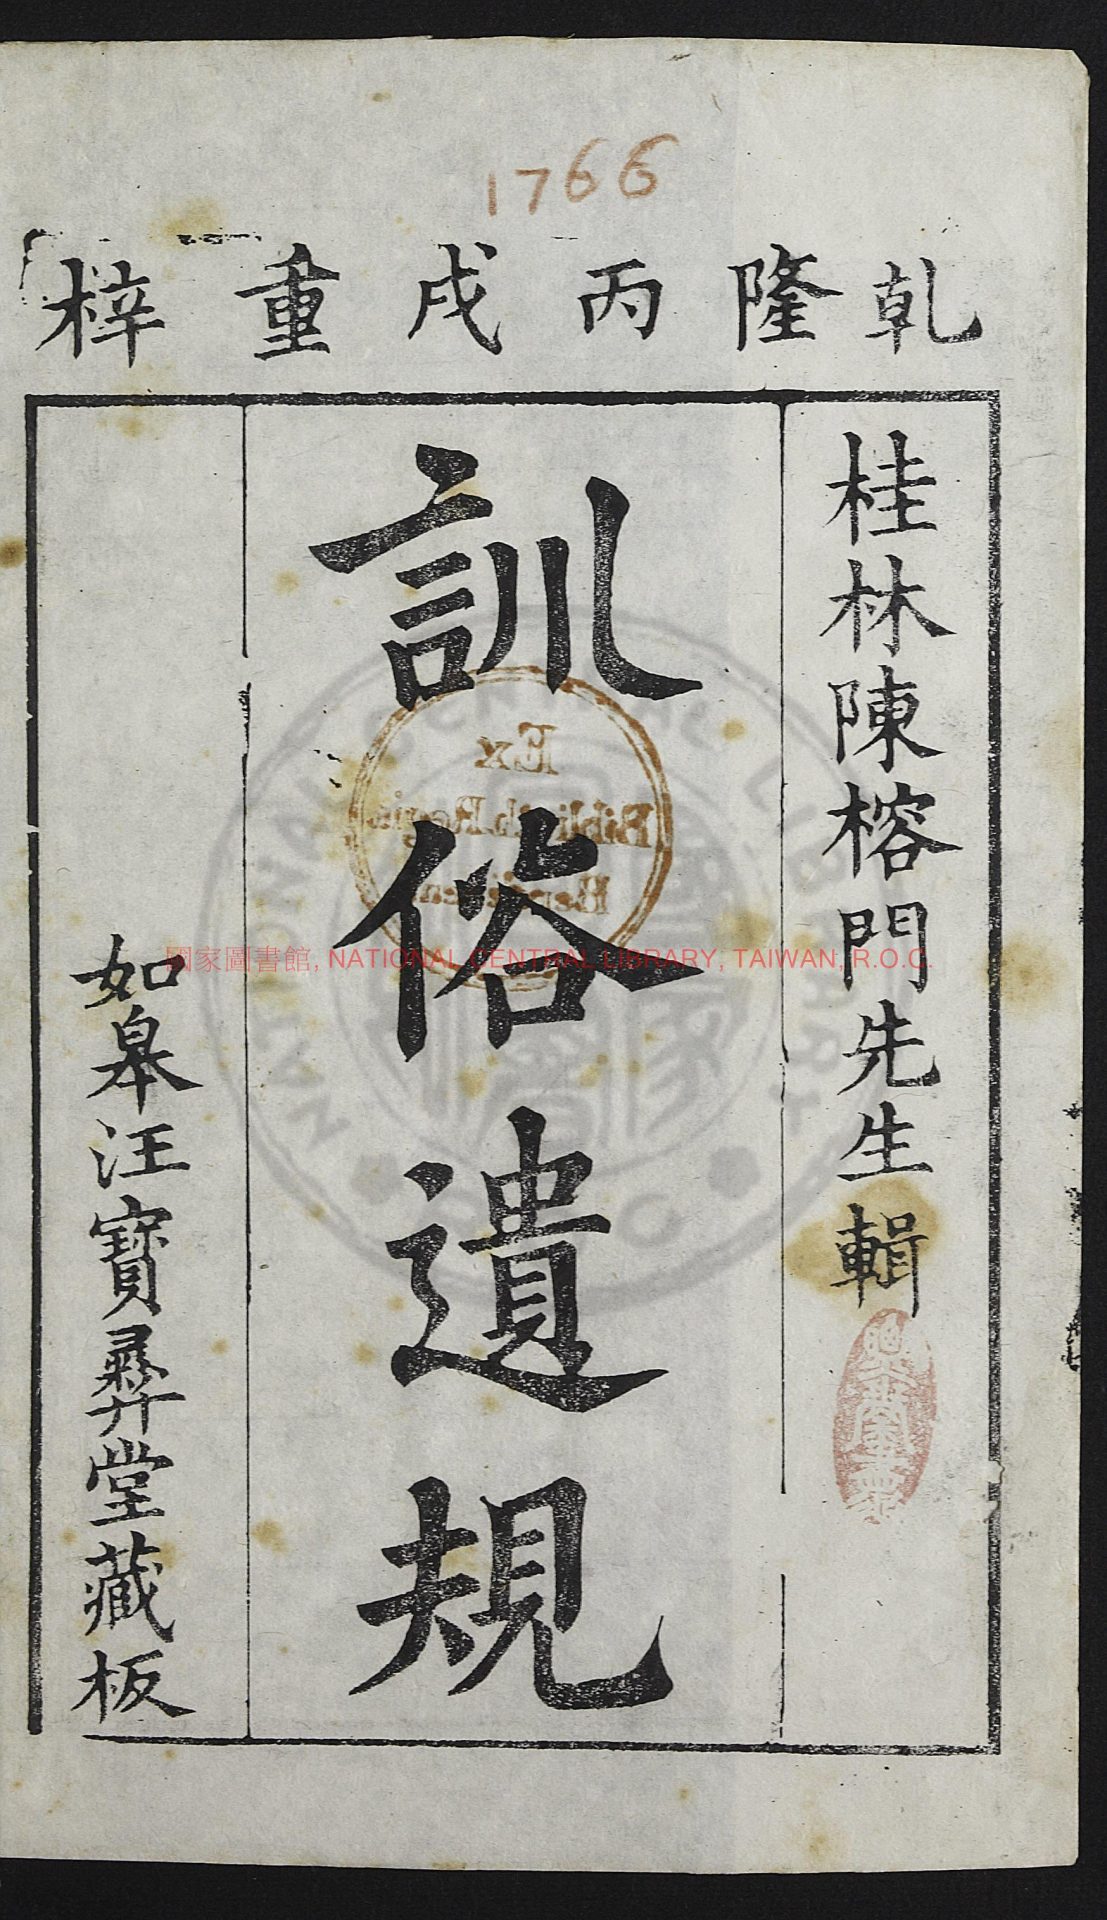 1766
乾隆丙戌重梓
桂林陳榕門先生輯
訓俗遺規
如皋汪寶彝堂藏板
Ex
Biblioth. Regia
國家圖書館, NATIONAL CENTRAL LIBRARY, TAIWAN, R.O.C.
NATIONAL CENTRAL LIBRARY